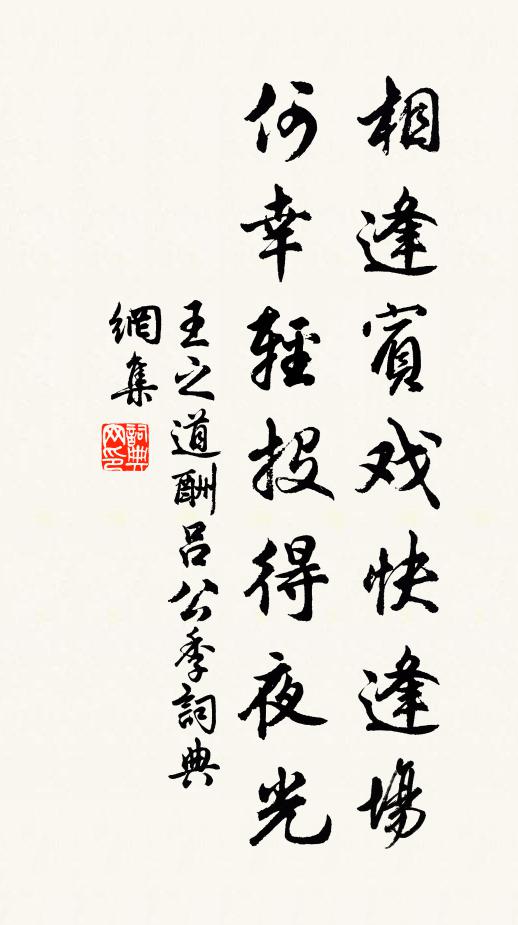 相逢賓戏快逢場
何幸輕投得夜光
王之道酬吕公季詞典
網集
詞典
网印